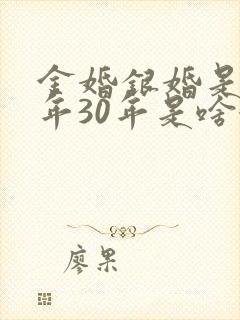 金婚银婚是
年30年是啥
廖果